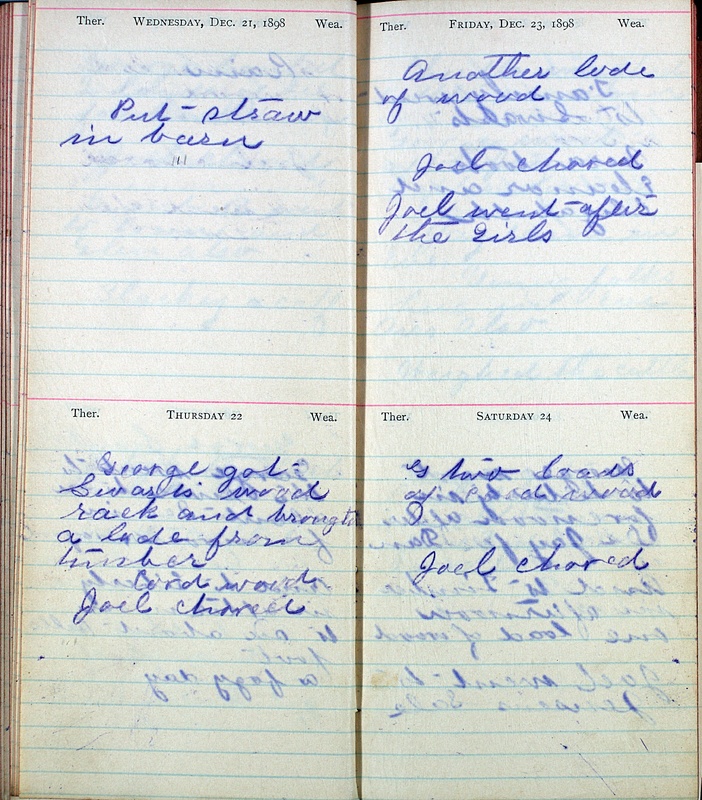 Ther. WEDNESDAY, DEC. 21, 1898 Wea.
Put straw
in barn
Ther. THURSDAY 22 Wea.
George got
Swarts wood
rack and brought
a lode from
timber
Cord wood
Joel chored
Ther. FRIDAY, DEC. 23, 1898 Wea.
Another lode
of wood
Joel chored
Joel went after
the girls
Ther. SATURDAY 24 Wea.
G two loads
of cord wood
Joel chored